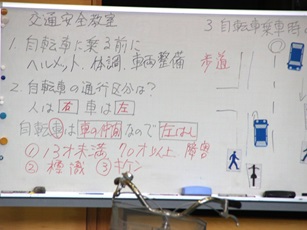 交通安全教室
1. 自転車に乗る前に
ヘルメット、体調、車両整備
歩道
2. 自転車の通行区分は?
人は右 車は左
自転車は車の仲間なので左はし
① 13才未満 70才以上 障害
② 標識 ③キケン
3 自転車乗車時の